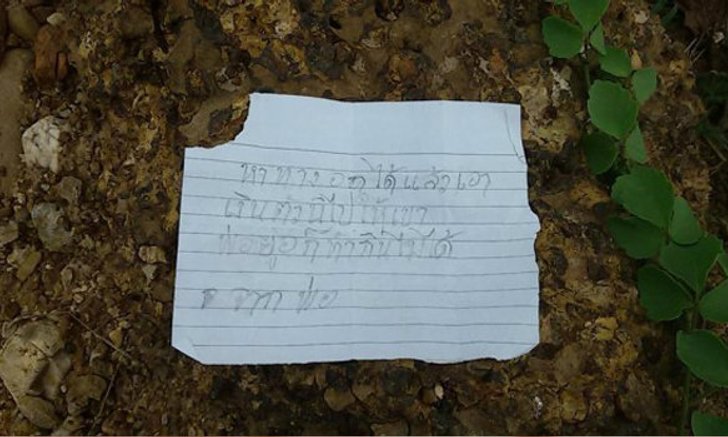 หาทางออกได้แล้วเอา
เงินตรานี้ไปให้เขา
พ่ออยู่ก็ทำกินไม่ได้
จากพ่อ